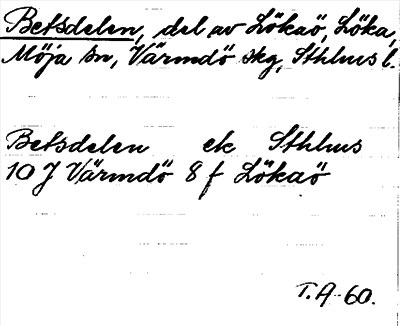 Betsdelen, del av Lökaö, Löka,
Möja sn, Värmdö skg, Sthlms l.
Betsdelen ek Sthlms
10 J Värmdö 8 f Lökaö
T.A-60.